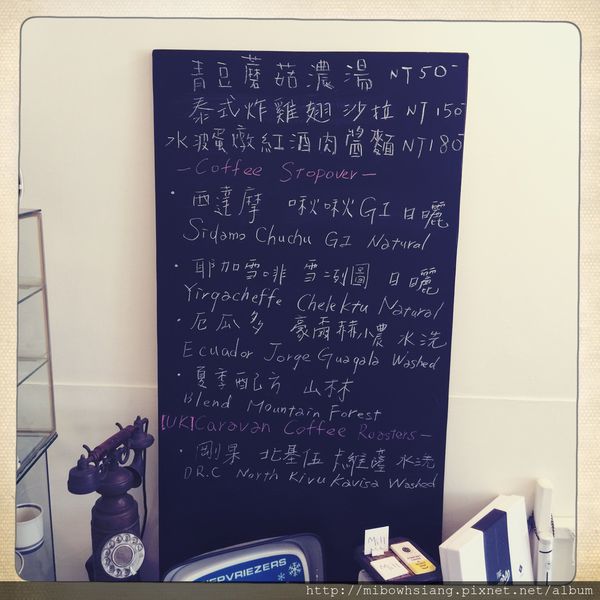 青豆蘑菇濃湯 NT50-
泰式炸雞翅沙拉 NT150-
水波蛋燉紅酒肉醬麵 NT180-
—Coffee Stopover—
· 西達摩 啾啾 G1 日曬
Sidamo Chuchu G1 Natural
· 耶加雪啡 雪洌圖 日曬
Yirgacheffe Chelektu Natural
· 厄瓜多 豪爾赫小農 水洗
Ecuador Jorge Guagala Washed
· 夏季配方 山林
Blend Mountain Forest
[UK]Caravan Coffee Roasters—
· 剛果 北基伍 卡維薩 水洗
D.R.C North Kivu Kavisa Washed
EPVRIEZERS
http://mibowhsiang.pixnet.net/album